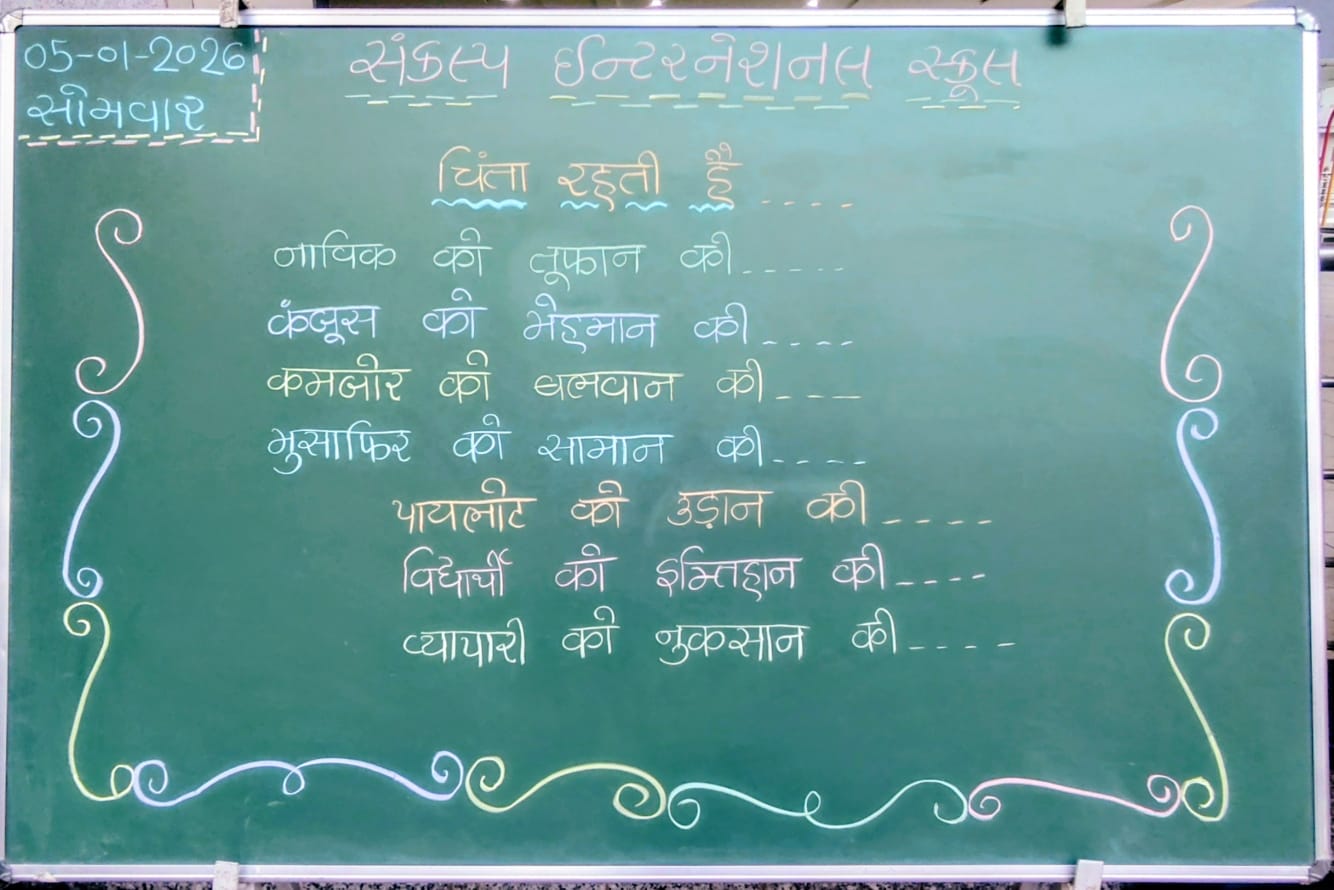 05-01-2026
सोमवार
संकल्प ईन्टरनेशनल स्कूल
चिंता रहती है....
नाविक को तूफान की.....
कंजूस को मेहमान की....
कमजोर को बलवान की---
मुसाफिर को सामान की----
पायलोट को उड़ान की----
विद्यार्थी को इम्तिहान की----
व्यापारी को नुकसान की----